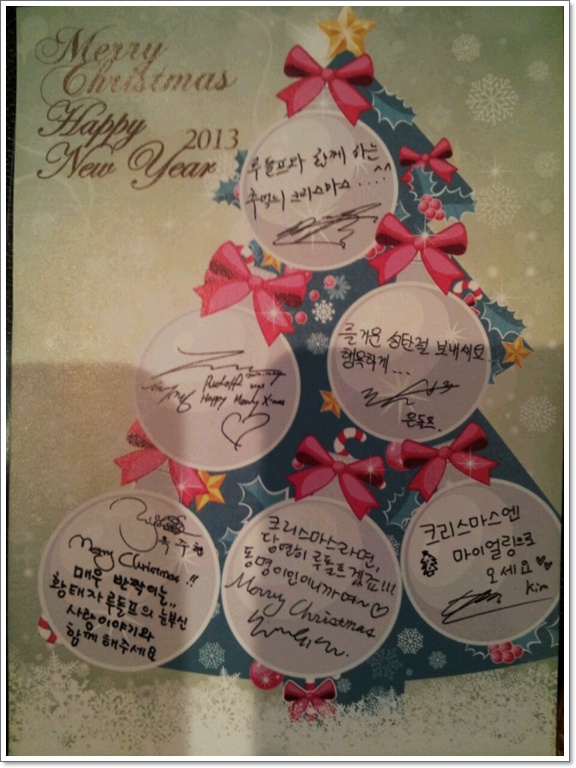 Merry
Christmas
Happy 2013
New Year
루돌프와 함께 하는
추억의 크리스마스....^^
Rudolf
Happy Merry X-mas
즐거운 성탄절 보내세요
행복하게...
은돌프.
옥주현
Merry Christmas!!
매우 반짝이는,,
황태자루돌프의 눈부신
사랑이야기와
함께 해주세요
크리스마스라면,
당연히 루돌프겠죠!!!
동명이인이니까여~♡
Merry Christmas
크리스마스엔
마이얼링으로
오세요♡♡
Kim